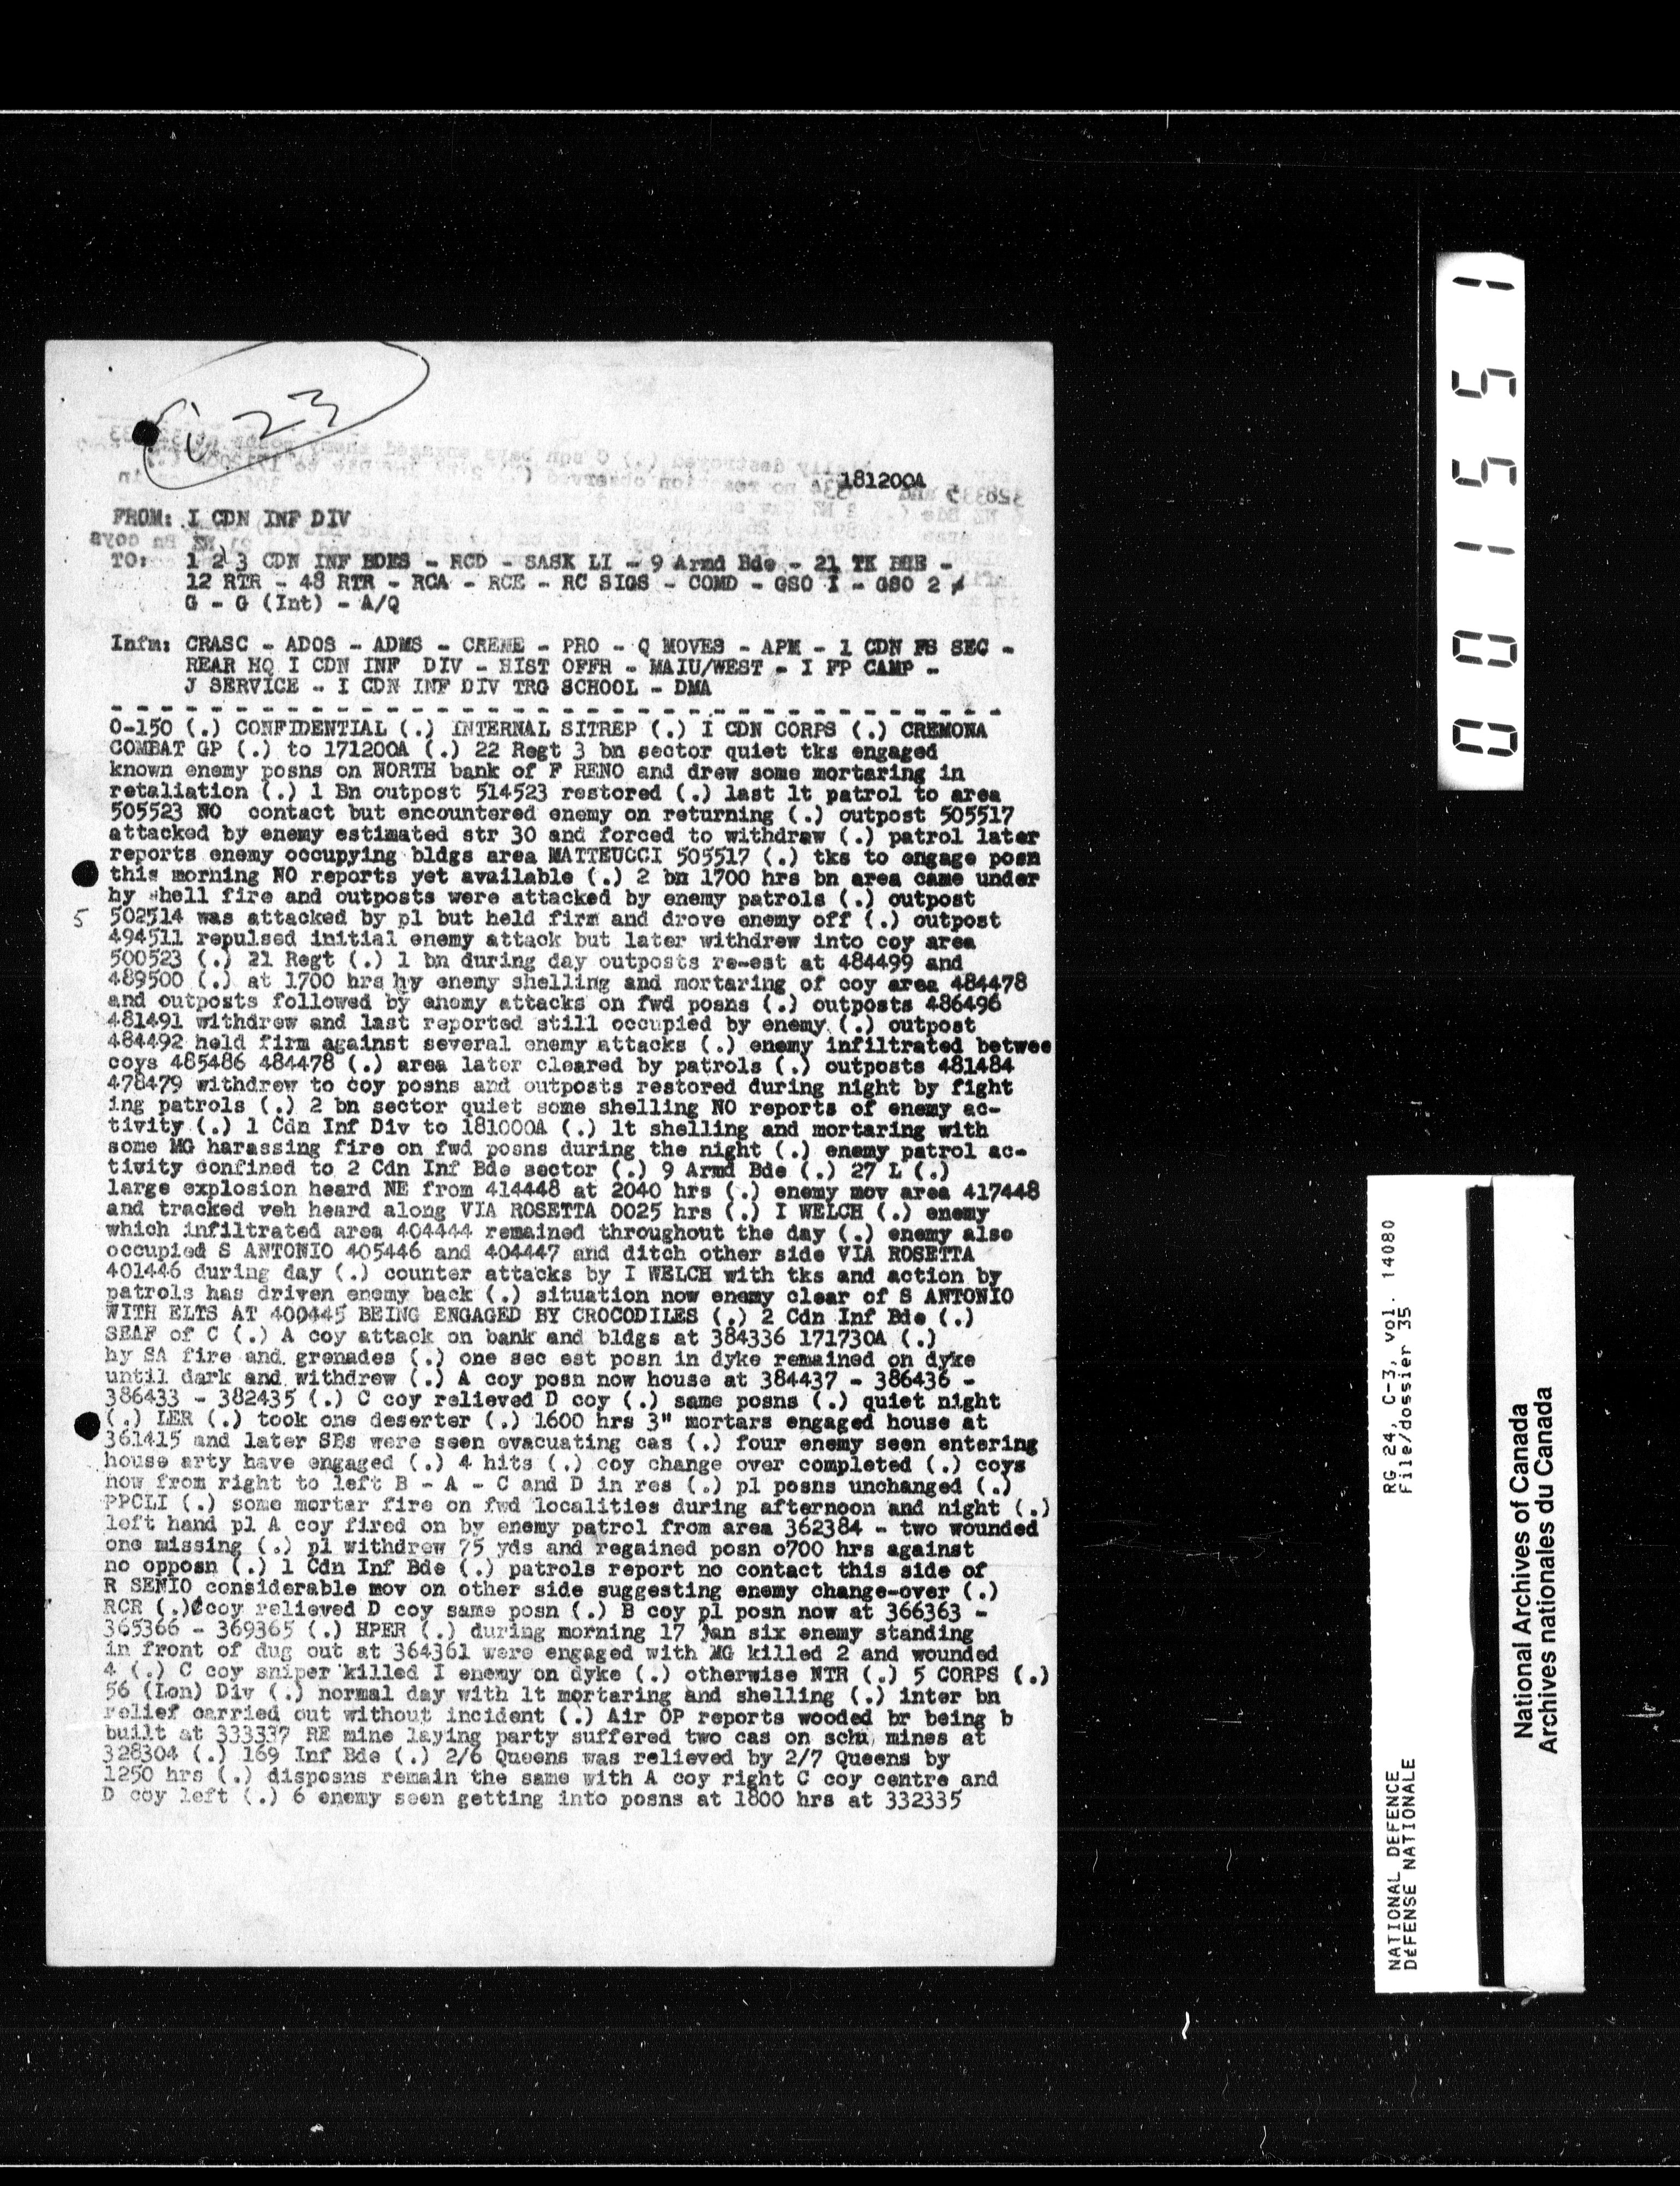 23
181200A
FROM: I CDN INF DIV
TO: 1 2 3 CDN INF BDES - RCD - SASK LI - 9 Armd Bde - 21 TK BDE -
12 RTR - 48 RTR - RCA - RCE - RC SIGS - COMD - GSO I - GSO 2
G - G (Int) - A/Q
Infm: CRASC - ADOS - ADMS - CREME - PRO - Q MOVES - APM - 1 CDN FS SEC -
REAR HQ I CDN INF DIV - HIST OFFR - MAIU/WEST - I FP CAMP -
J SERVICE - I CDN INF DIV TRG SCHOOL - DMA
O-150 (.) CONFIDENTIAL (.) INTERNAL SITREP (.) I CDN CORPS (.) CREMONA
COMBAT GP (.) to 171200A (.) 22 Regt 3 bn sector quiet tks engaged
known enemy posns on NORTH bank of F RENO and drew some mortaring in
retaliation (.) 1 Bn outpost 514523 restored (.) last lt patrol to area
505523 NO contact but encountered enemy on returning (.) outpost 505517
attacked by enemy estimated str 30 and forced to withdraw (.) patrol later
reports enemy occupying bldgs area MATTEUCCI 505517 (.) tks to engage posn
this morning NO reports yet available (.) 2 bn 1700 hrs bn area came under
hy shell fire and outposts were attacked by enemy patrols (.) outpost
5 502514 was attacked by pl but held firm and drove enemy off (.) outpost
494511 repulsed initial enemy attack but later withdrew into coy area
500523 (.) 21 Regt (.) 1 bn during day outposts re-est at 484499 and
489500 (.) at 1700 hrs hy enemy shelling and mortaring of coy area 484478
and outposts followed by enemy attacks on fwd posns (.) outposts 486496
481491 withdrew and last reported still occupied by enemy (.) outpost
484492 held firm against several enemy attacks (.) enemy infiltrated betwee
coys 485486 484478 (.) area later cleared by patrols (.) outposts 481484
478479 withdrew to coy posns and outposts restored during night by fight
ing patrols (.) 2 bn sector quiet some shelling NO reports of enemy ac-
tivity (.) 1 Cdn Inf Div to 181000A (.) lt shelling and mortaring with
some MG harassing fire on fwd posns during the night (.) enemy patrol ac-
tivity confined to 2 Cdn Inf Bde sector (.) 9 Armd Bde (.) 27 L (.)
large explosion heard NE from 414448 at 2040 hrs (.) enemy mov area 417448
and tracked veh heard along VIA ROSETTA 0025 hrs (.) I WELCH (.) enemy
which infiltrated area 404444 remained throughout the day (.) enemy also
occupied S ANTONIO 405446 and 404447 and ditch other side VIA ROSETTA
401446 during day (.) counter attacks by I WELCH with tks and action by
patrols has driven enemy back (.) situation now enemy clear of S ANTONIO
WITH ELTS AT 400445 BEING ENGAGED BY CROCODILES (.) 2 Cdn Inf Bde (.)
SEAF of C (.) A coy attack on bank and bldgs at 384336 171730A (.)
hy SA fire and grenades (.) one sec est posn in dyke remained on dyke
until dark and withdrew (.) A coy posn now house at 384437 - 386436 -
386433 - 382435 (.) C coy relieved D coy (.) same posns (.) quiet night
(.) LER (.) took one deserter (.) 1600 hrs 3" mortars engaged house at
361415 and later SBs were seen evacuating cas (.) four enemy seen entering
house arty have engaged (.) 4 hits (.) coy change over completed (.) coys
now from right to left B - A - C and D in res (.) pl posns unchanged (.)
PPCLI (.) some mortar fire on fwd localities during afternoon and night (.)
left hand pl A coy fired on by enemy patrol from area 362384 - two wounded
one missing (.) pl withdrew 75 yds and regained posn o700 hrs against
no opposn (.) 1 Cdn Inf Bde (.) patrols report no contact this side of
R SENIO considerable mov on other side suggesting enemy change-over (.)
RCR (.)Ccoy relieved D coy same posn (.) B coy pl posn now at 366363 -
365366 - 369365 (.) HPER (.) during morning 17 Jan six enemy standing
in front of dug out at 364361 were engaged with MG killed 2 and wounded
4 (.) C coy sniper killed I enemy on dyke (.) otherwise NTR (.) 5 CORPS (.)
56 (Lon) Div (.) normal day with lt mortaring and shelling (.) inter bn
relief carried out without incident (.) Air OP reports wooded br being b
built at 333337 RE mine laying party suffered two cas on schu mines at
328304 (.) 169 Inf Bde (.) 2/6 Queens was relieved by 2/7 Queens by
1250 hrs (.) disposns remain the same with A coy right C coy centre and
D coy left (.) 6 enemy seen getting into posns at 1800 hrs at 332335
001551
NATIONAL DEFENCE
DéFENSE NATIONALE
RG 24, C-3, vol. 14080
File/dossier 35
National Archives of Canada
Archives nationales du Canada